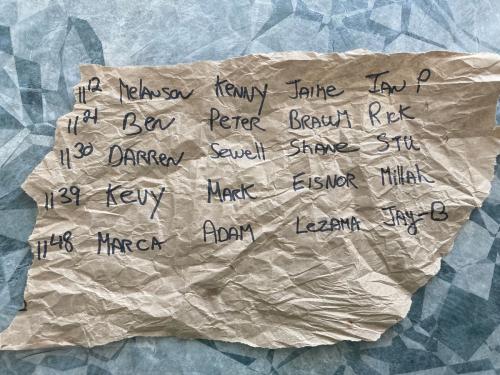 11 12 Melanson Kenny Jaime Ian P
11 21 Ben Peter Braum Rick
11 30 Darren Sewell Shane Stu
11 39 Kevy Mark Eisnor Millah
11 48 Marca Adam Lezama Jay-B